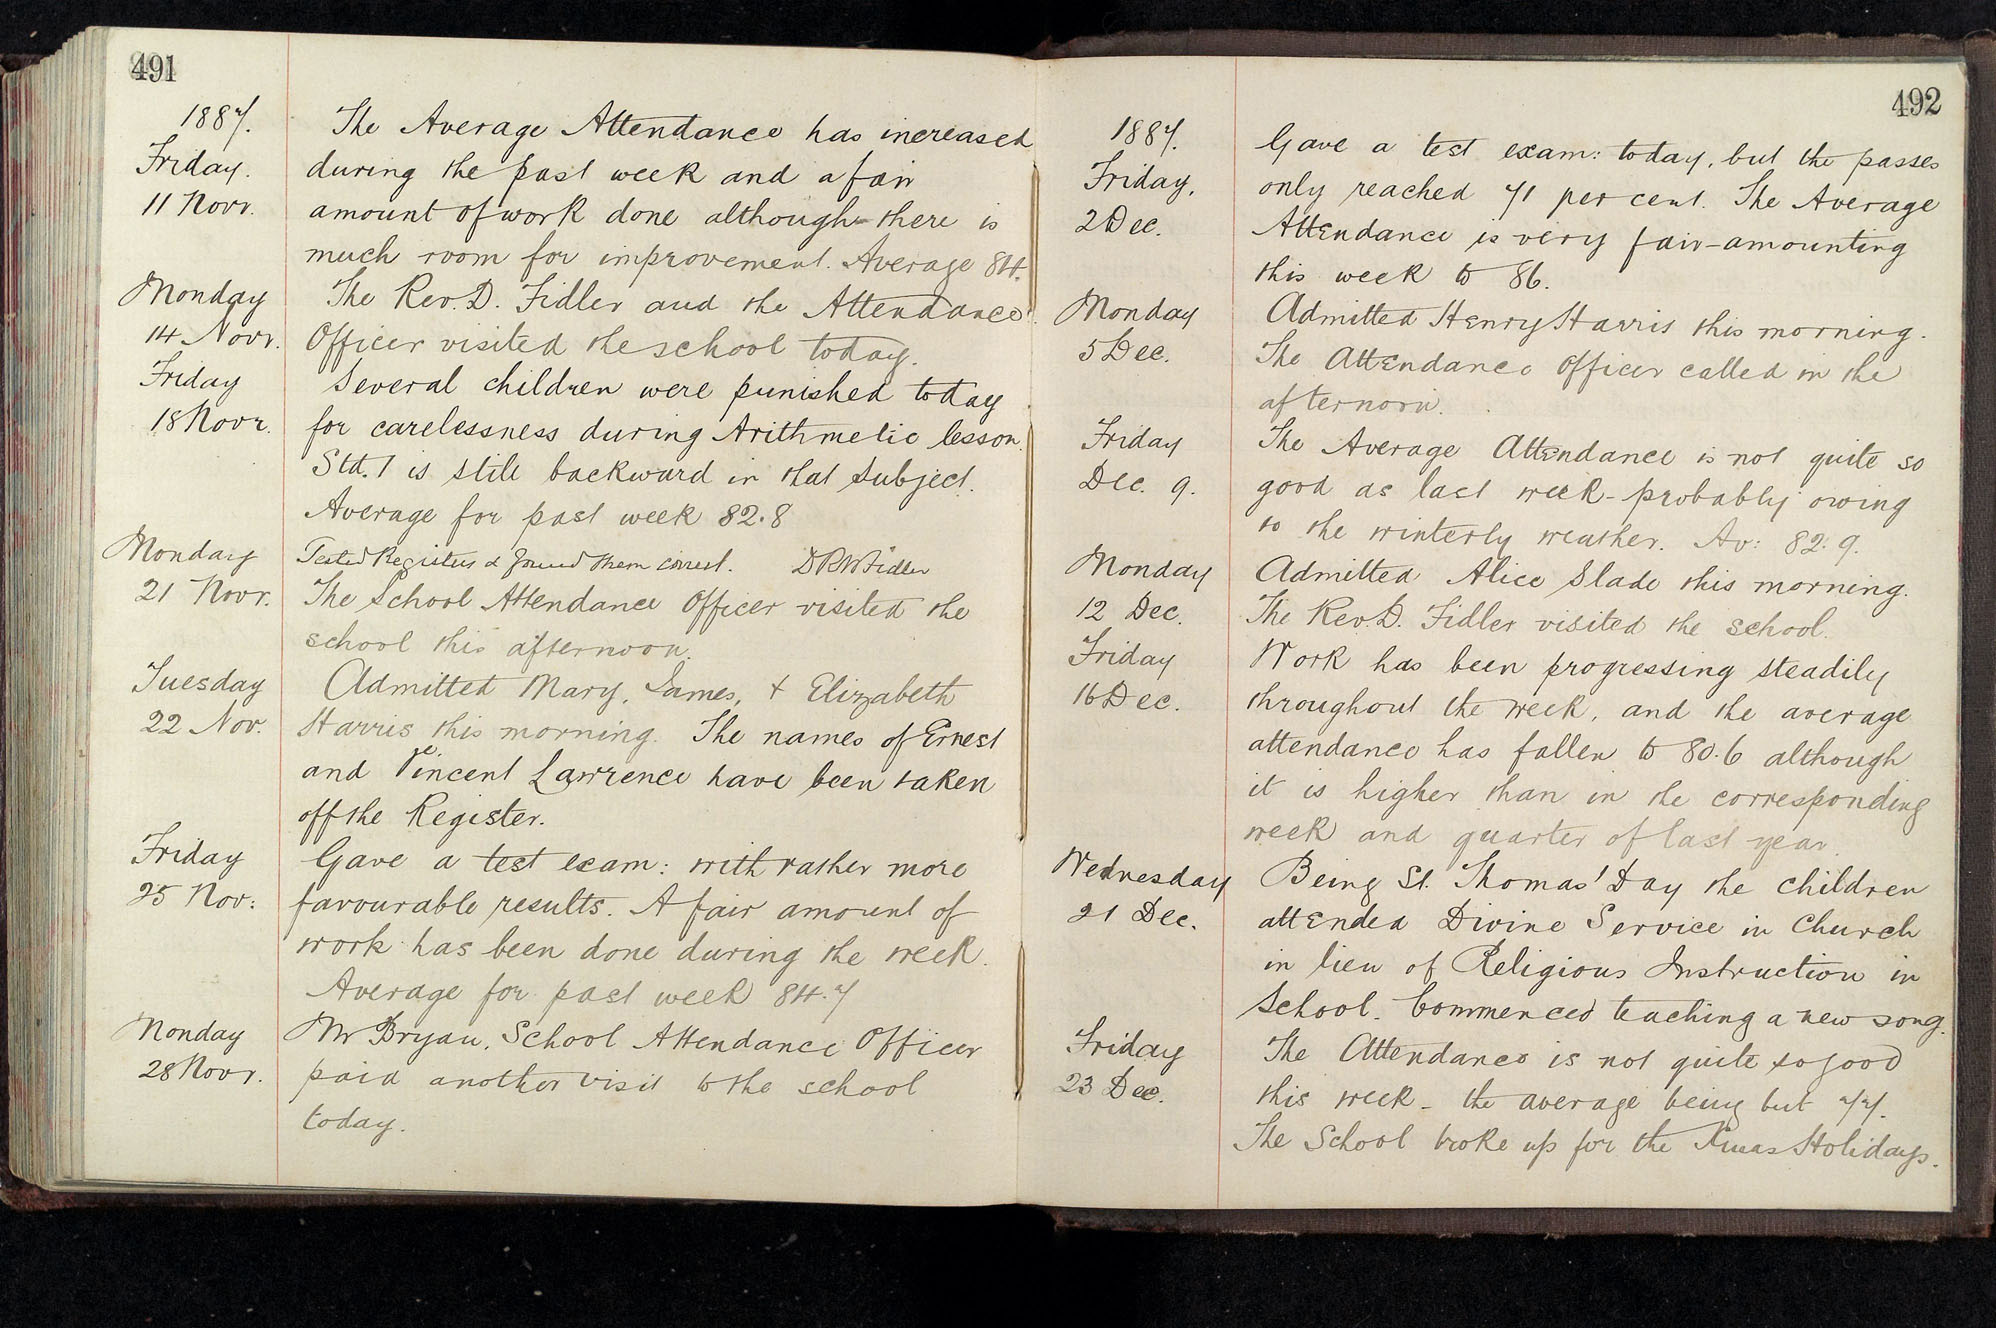 491
1887.
Friday.
11 Novr.
The Average Attendance has increased
during the past week and a fair
amount of work done although there is
much room for improvement. Average 84.
Monday
14 Novr.
The Rev. D. Fidler and the Attendance
Officer visited the school today.
Friday
18 Novr.
Several children were punished today
for carelessness during Arithmetic lesson.
Std. 1 is still backward in that subject.
Average for past week 82.8
Monday
21 Novr.
Tested Registers & found them correct. D R W Fidler
The School Attendance Officer visited the
school this afternoon.
Tuesday
22 Nov.
Admitted Mary, James, & Elizabeth
Harris this morning. The names of Ernest
and Vincent Lawrence have been taken
off the Register.
Friday
25 Nov:
Gave a test exam: with rather more
favourable results. A fair amount of
work has been done during the week.
Average for past week 84.7
Monday
28 Novr.
Mr Bryan, School Attendance Officer
paid another visit to the school
today.
492
1887.
Friday,
2 Dec.
Gave a test exam: today, but the passes
only reached 71 per cent. The Average
Attendance is very fair-amounting
this week to 86.
Monday
5 Dec.
Admitted Henry Harris this morning.
The Attendance Officer called in the
afternoon.
Friday
Dec. 9.
The Average Attendance is not quite so
good as last week - probably owing
to the winterly weather. Av: 82.9.
Monday
12 Dec.
Admitted Alice Slade this morning.
The Rev. D. Fidler visited the school.
Friday
16 Dec.
Work has been progressing steadily
throughout the week, and the average
attendance has fallen to 80.6 although
it is higher than in the corresponding
week and quarter of last year.
Wednesday
21 Dec.
Being St. Thomas' Day the children
attended Divine Service in Church
in lieu of Religious Instruction in
School. Commenced teaching a new song.
Friday
23 Dec.
The Attendance is not quite so good
this week - the average being but 77.
The School broke up for the Xmas Holidays.